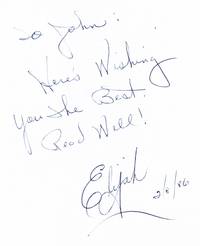 To John!
Here's Wishing
You The Best.
Read Well!
Elijah
2/8/86